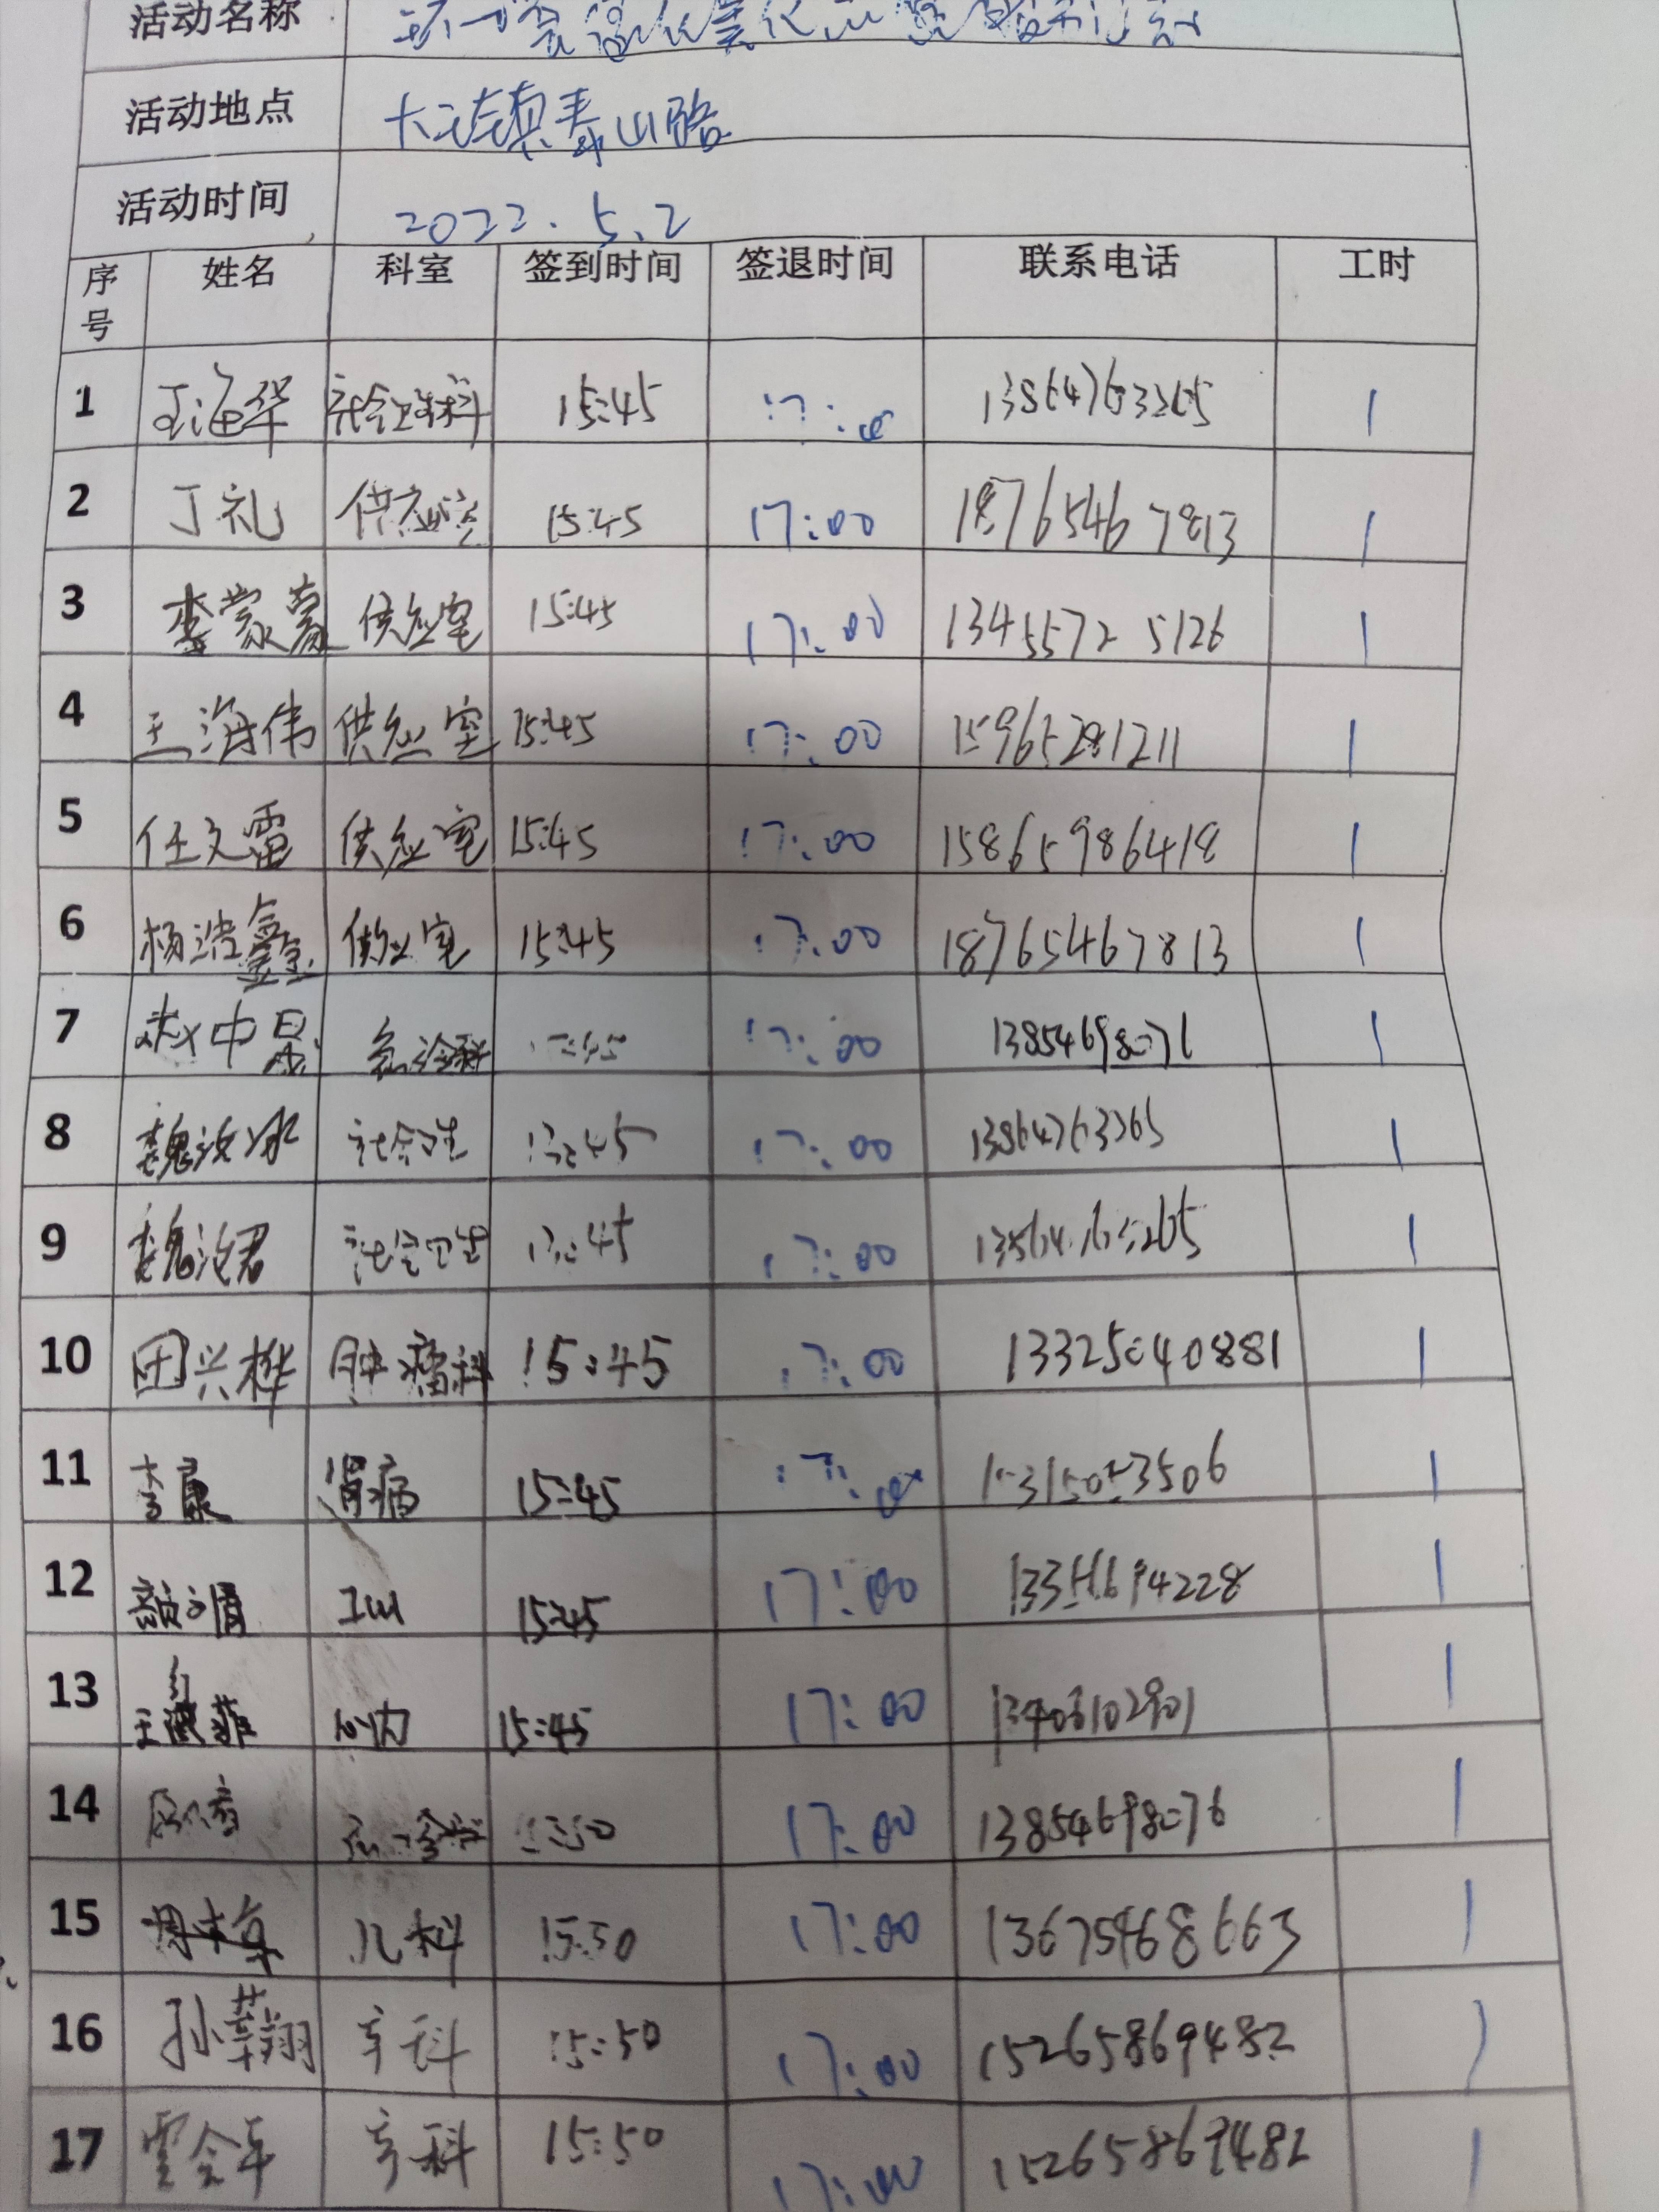 活动名称
活动地点 大王镇泰山路
活动时间 2022.5.2
序号 姓名 科室 签到时间 签退时间 联系电话 工时
1 王海华 社会卫生科 15:45 17:00 13864763265 1
2 丁礼 供应室 15:45 17:00 18765467813 1
3 李蒙蒙 供应室 15:45 17:00 13455725126 1
4 王海伟 供应室 15:45 17:00 15965281211 1
5 任文雷 供应室 15:45 17:00 15865986418 1
6 杨浩鑫 供应室 15:45 17:00 18765467813 1
7 赵中昱 急诊科 15:45 17:00 13854698076 1
8 魏汝冰 社会卫生 15:45 17:00 13864763265 1
9 魏汝君 社会卫生 15:45 17:00 1
10 田兴桦 肿瘤科 15:45 17:00 13325040881 1
11 李康 肾病 15:45 17:00 1
12 15:45 17:00 1
13 王 菲 心内 15:45 17:00 1
14 急诊科 15:50 17:00 13854698076 1
15 儿科 15:50 17:00 13675468663 1
16 孙 翔 15:50 17:00 15265869482 1
17 15:50 17:00 15265869482 1